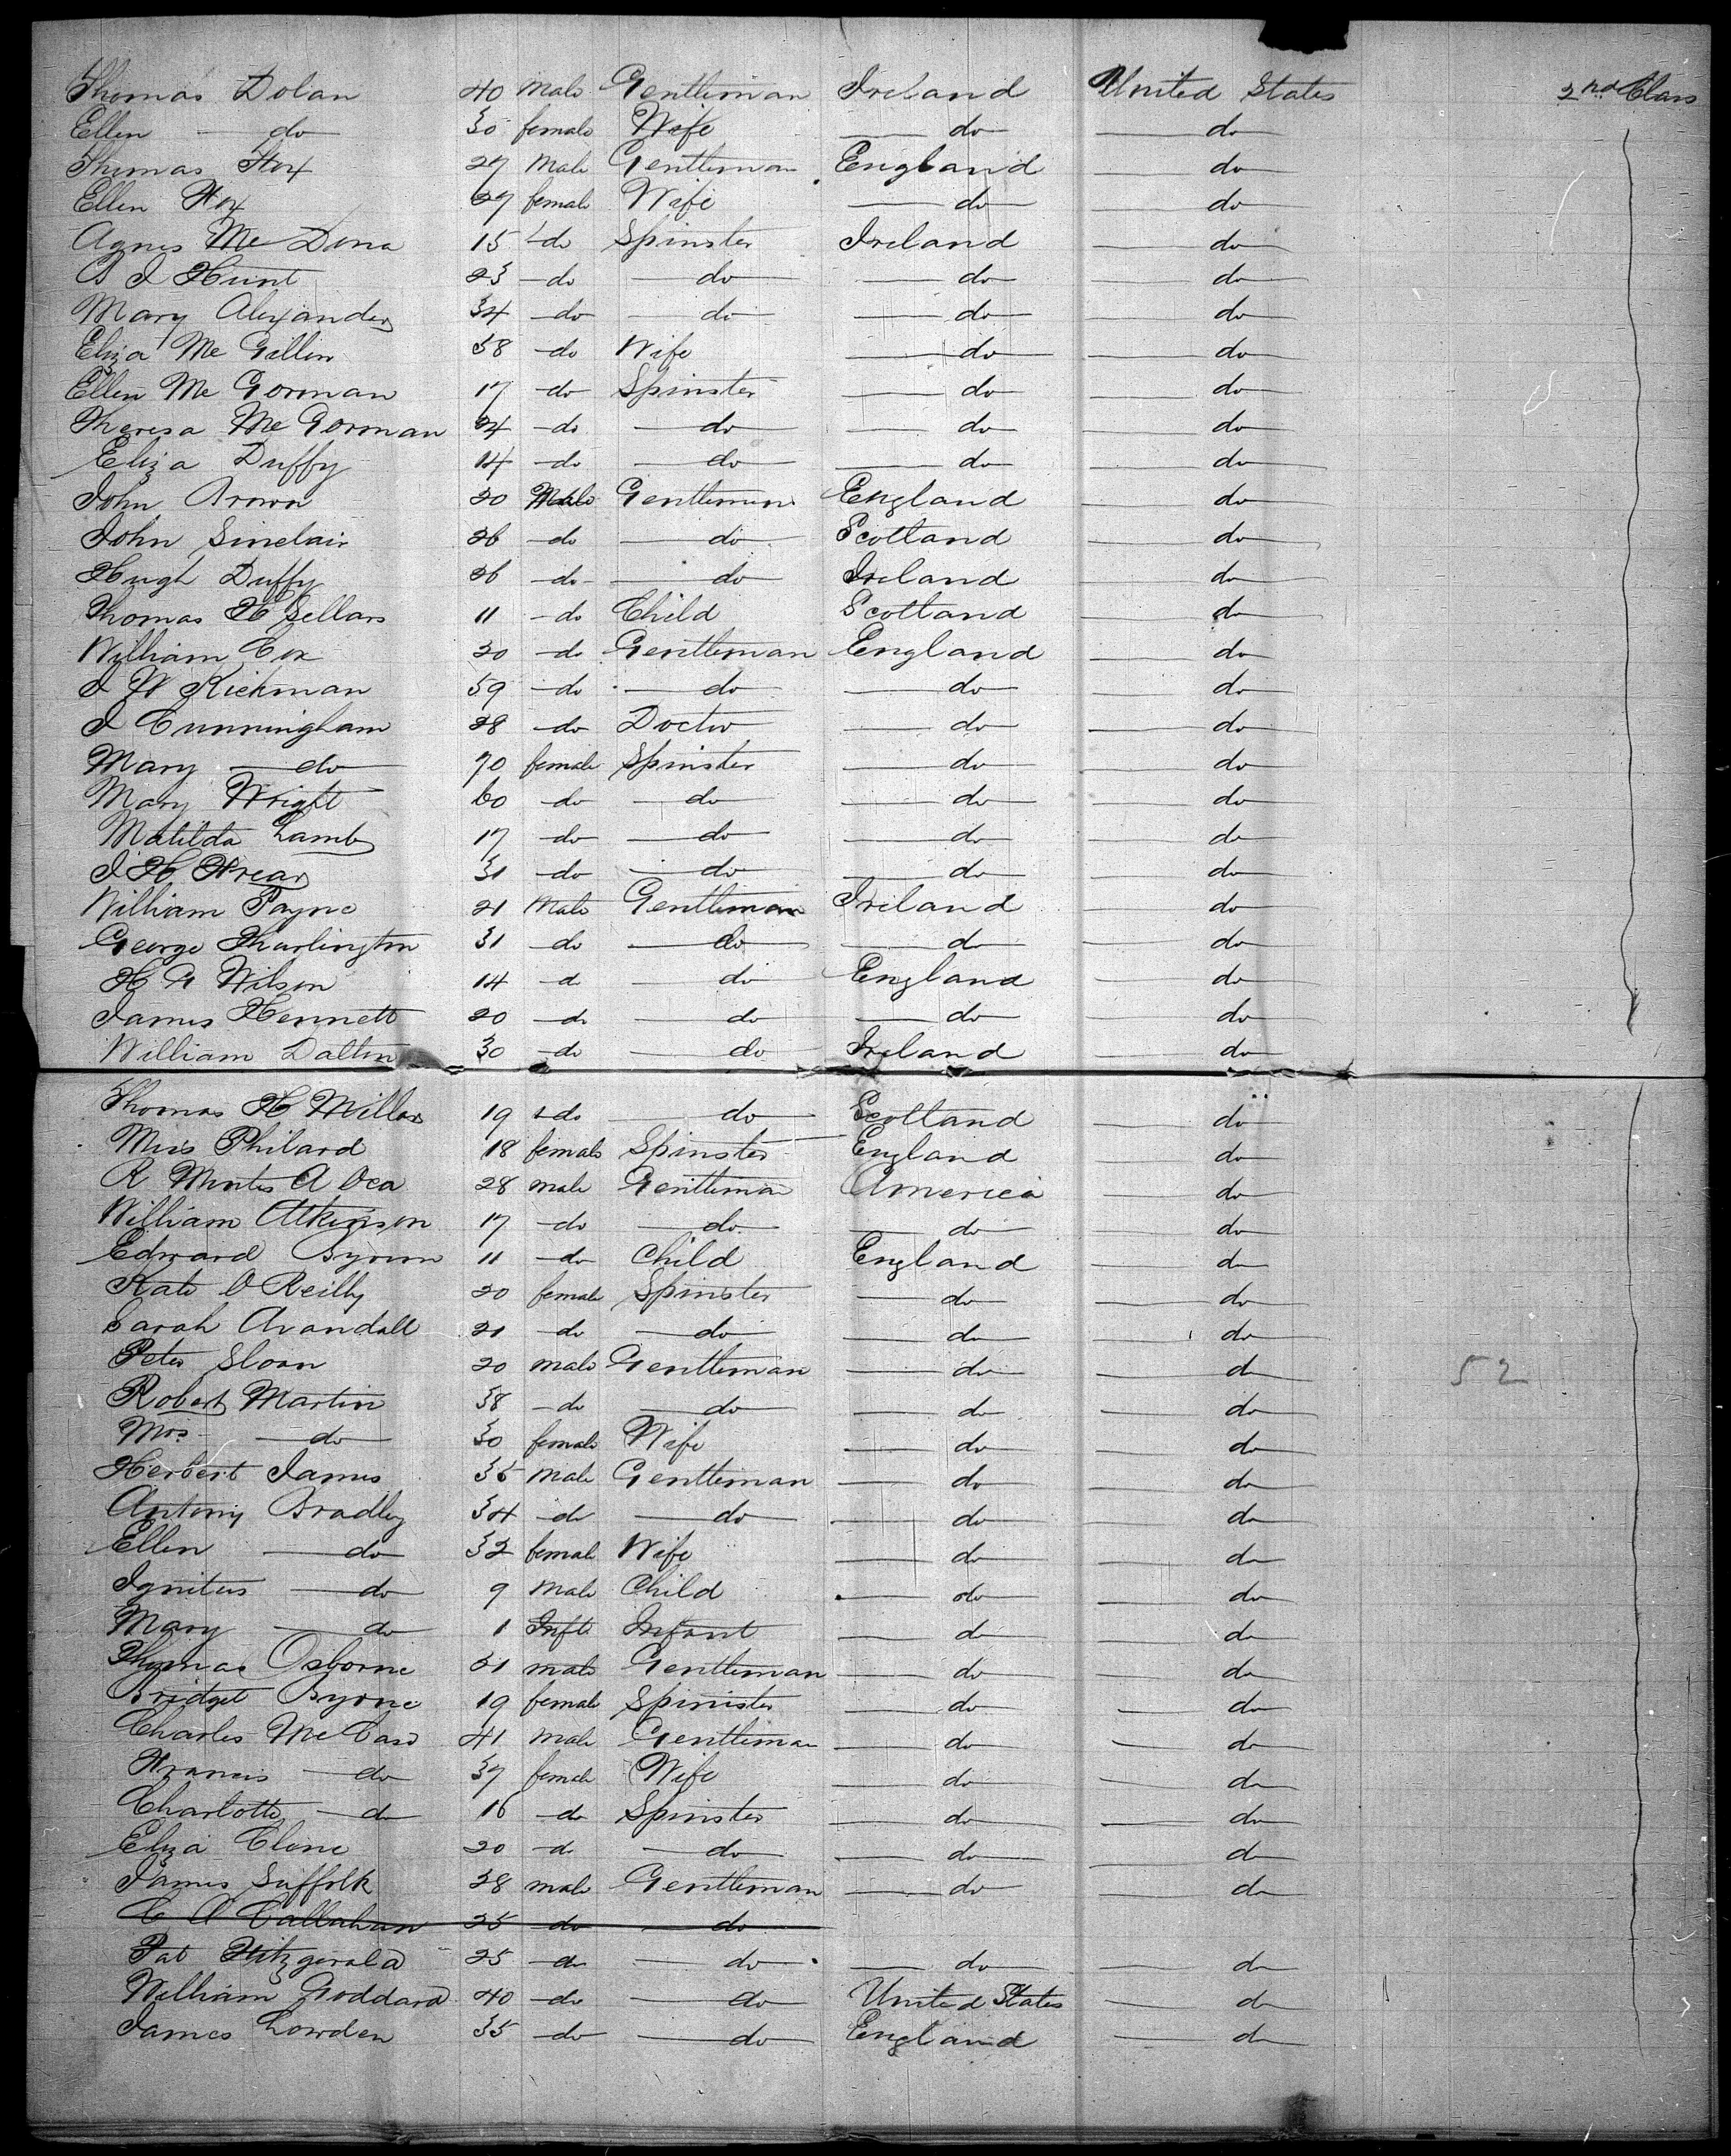 Thomas Dolan 40 Male Gentleman Ireland United States 2nd Class
Ellen do 30 female Wife do do
Thomas Fox 27 Male Gentleman England do
Ellen Fox 27 female Wife do do
Agnes Mc Dona 15 do Spinster Ireland do
J Hunt 23 do do do do
Mary Alexander 34 do do do do
Eliza Mc Gillin 38 do Wife do do
Ellen Mc Gorman 17 do Spinster do do
Theresa Mc Gorman 24 do do do do
Eliza Duffy 14 do do do do
John Brown 20 Male Gentleman England do
John Sinclair 26 do do Scotland do
Hugh Duffy 26 do do Ireland do
Thomas H Sellars 11 do Child Scotland do
William Cox 20 do Gentleman England do
J W Rickman 59 do do do do
J Cunningham 28 do Doctor do do
Mary do 70 female Spinster do do
Mary Wright 60 do do do do
Matilda Lamb 17 do do do do
J H Frear 31 do do do do
William Payne 21 Male Gentleman Ireland do
George Tharlington 31 do do do do
H G Wilson 14 do do England do
James Hennett 20 do do do do
William Dalton 30 do do Ireland do
Thomas H Millar 19 do do Scotland do
Miss Philard 18 female Spinster England do
R Montes A Oca 28 male Gentleman America do
William Atkinson 17 do do do do
Edward Byron 11 do Child England do
Kate O Reilly 20 female Spinster do do
Sarah Avandall 21 do do do do
Peter Sloan 20 male Gentleman do do 52
Robert Martin 38 do do do do
Mrs do 30 female Wife do do
Herbert James 35 Male Gentleman do do
Antony Bradley 34 do do do do
Ellen do 32 female Wife do do
Ignitus do 9 Male Child do do
Mary do 1 Inft Infant do do
Thomas Osborne 21 male Gentleman do do
Bridget Byrne 19 female Spinister do do
Charles Mc Caw 41 male Gentleman do do
Francis do 37 female Wife do do
Charlotte do 16 do Spinster do do
Eliza Clone 20 do do do do
James Suffolk 28 male Gentleman do do
C A Callahan 25 do do
Pat Fitzgerald 25 do do do do
William Goddard 40 do do United States do
James Lowden 35 do do England do